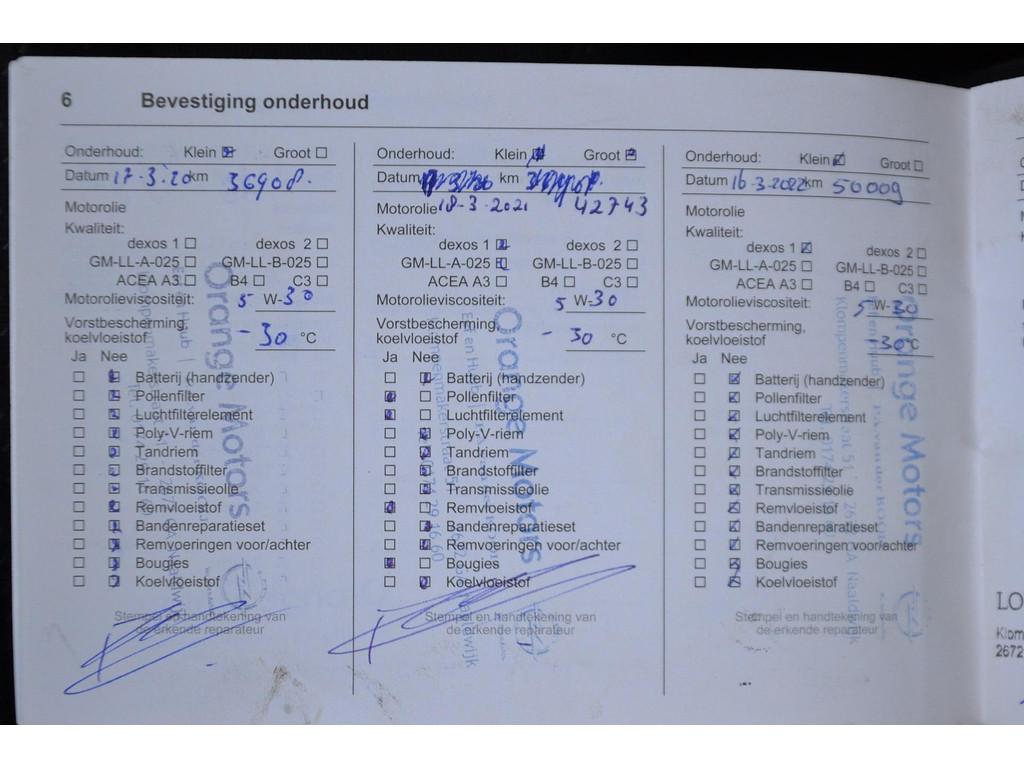 6 Bevestiging onderhoud
Onderhoud: Klein ☒ Groot ☐
Datum 17-3-20 km 36908.
Motorolie
Kwaliteit:
dexos 1 ☐ dexos 2 ☐
GM-LL-A-025 ☐ GM-LL-B-025 ☐
ACEA A3 ☐ B4 ☐ C3 ☐
Motorolieviscositeit: 5 W-30
Vorstbescherming,
koelvloeistof -30 °C
Ja Nee
☐ ☒ Batterij (handzender)
☐ ☒ Pollenfilter
☐ ☒ Luchtfilterelement
☐ ☒ Poly-V-riem
☐ ☒ Tandriem
☐ ☒ Brandstoffilter
☐ ☒ Transmissieolie
☐ ☒ Remvloeistof
☐ ☒ Bandenreparatieset
☐ ☒ Remvoeringen voor/achter
☐ ☒ Bougies
☐ ☒ Koelvloeistof
Stempel en handtekening van
de erkende reparateur
Orange Motors
Onderhoud: Klein Groot ☒
Datum km
Motorolie 18-3-2021 42743
Kwaliteit:
dexos 1 ☒ dexos 2 ☐
GM-LL-A-025 GM-LL-B-025 ☐
ACEA A3 ☐ B4 ☐ C3 ☐
Motorolieviscositeit: 5 W-30
Vorstbescherming,
koelvloeistof -30 °C
Ja Nee
☐ ☒ Batterij (handzender)
☒ ☐ Pollenfilter
☒ ☐ Luchtfilterelement
☐ ☒ Poly-V-riem
☐ ☒ Tandriem
☐ ☒ Brandstoffilter
☐ ☒ Transmissieolie
☒ ☐ Remvloeistof
☐ ☒ Bandenreparatieset
☐ ☒ Remvoeringen voor/achter
☒ ☐ Bougies
☐ ☒ Koelvloeistof
Stempel en handtekening van
de erkende reparateur
Orange Motors
Onderhoud: Klein ☒ Groot ☐
Datum 16-3-2022 km 50009
Motorolie
Kwaliteit:
dexos 1 ☒ dexos 2 ☐
GM-LL-A-025 ☐ GM-LL-B-025 ☐
ACEA A3 ☐ B4 ☐ C3 ☐
Motorolieviscositeit: 5 W-30
Vorstbescherming,
koelvloeistof -30 °C
Ja Nee
☐ ☒ Batterij (handzender)
☐ ☒ Pollenfilter
☐ ☒ Luchtfilterelement
☐ ☒ Poly-V-riem
☐ ☒ Tandriem
☐ ☒ Brandstoffilter
☐ ☒ Transmissieolie
☐ ☒ Remvloeistof
☐ ☒ Bandenreparatieset
☐ ☒ Remvoeringen voor/achter
☐ ☒ Bougies
☐ ☒ Koelvloeistof
Stempel en handtekening van
de erkende reparateur
Orange Motors
LO
Klom
2672